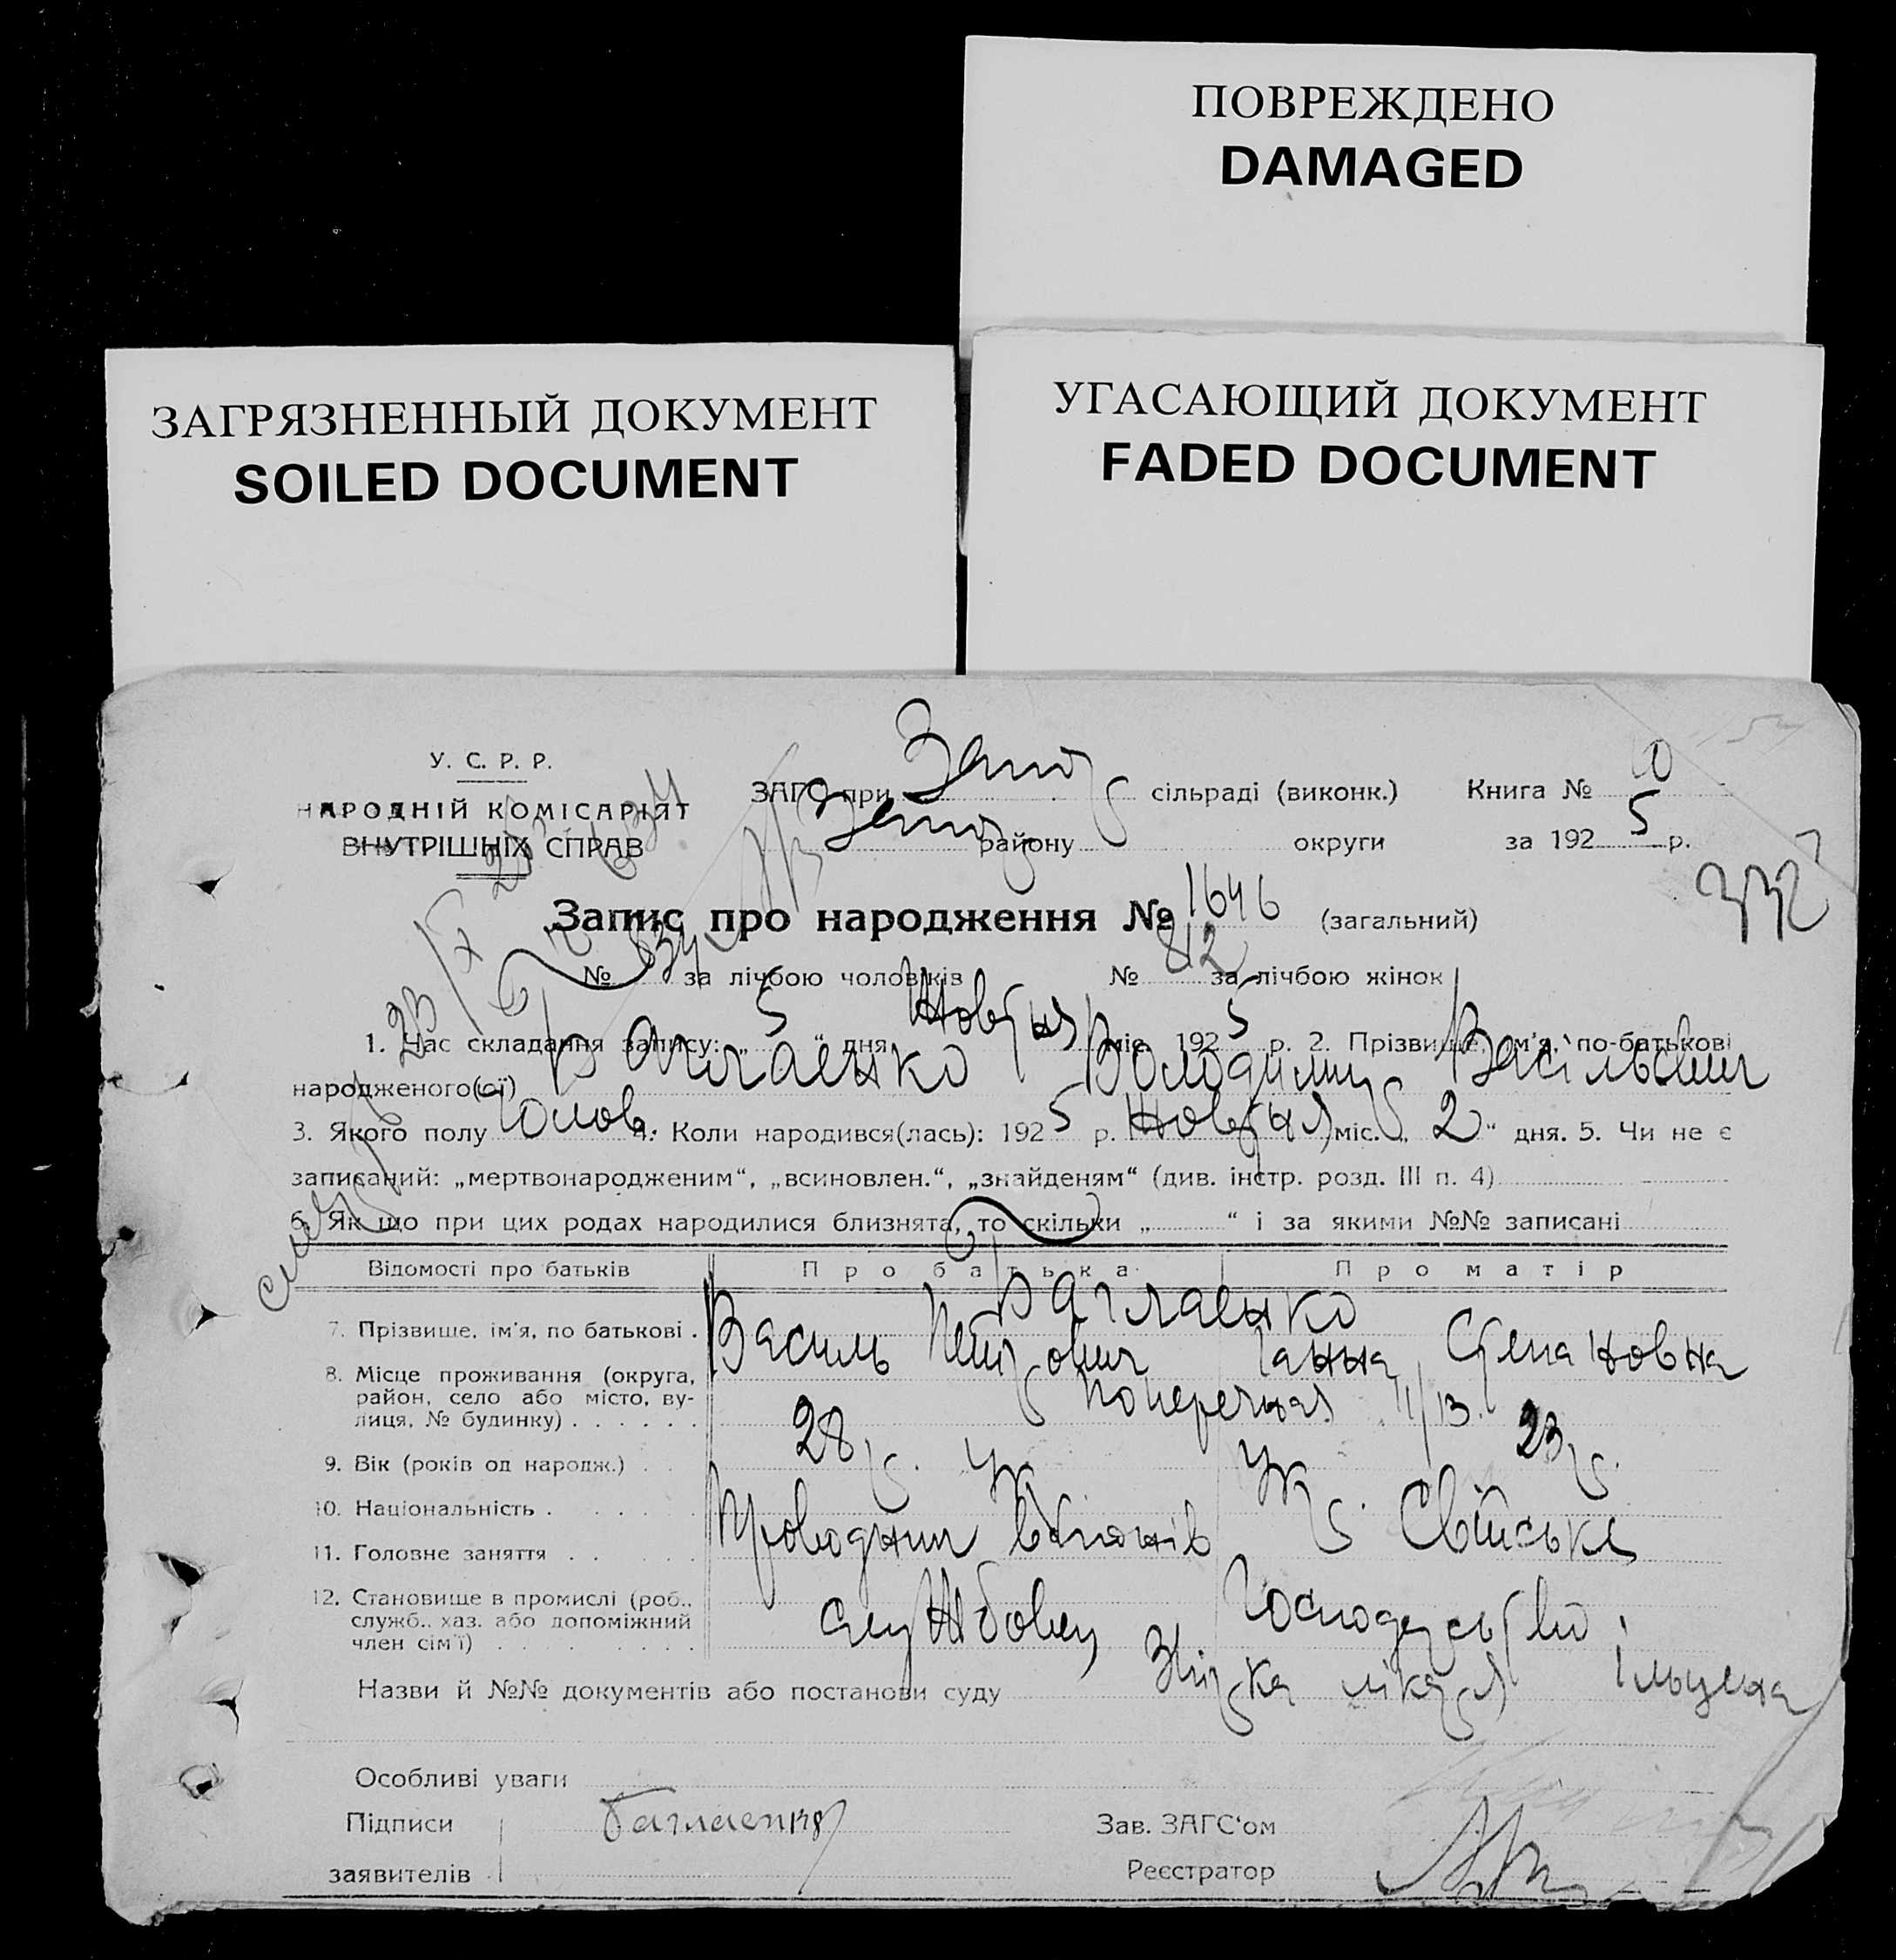 ПОВРЕЖДЕНО
DAMAGED
ЗАГРЯЗНЕННЫЙ ДОКУМЕНТ
SOILED DOCUMENT
УГАСАЮЩИЙ ДОКУМЕНТ
FADED DOCUMENT
У. С. Р. Р.
НАРОДНІЙ КОМІСАРІЯТ
ВНУТРІШНІХ СПРАВ
ЗАГС при Запоr сільраді (виконк.) Книга № 10
Запоr району округи за 1925 р.
Запис про народження № 1646 (загальний)
№ 834 за лічбою чоловіків № 812 за лічбою жінок
1. Час складання запису: „5“ дня Жовтня міс. 1925 р. 2. Прізвище, ім'я, по-батькові
народженого(ої) Баглаенко Володимир Васільович
3. Якого полу Чолов. 4. Коли народився(лась): 1925 р. Жовтня міс. „2“ дня. 5. Чи не є
записаний: „мертвонародженим“, „всиновлен.“, „знайденям“ (див. інстр. розд. III п. 4)
6. Як що при цих родах народилися близнята, то скільки „ “ і за якими №№ записані
Відомості про батьків Про батька Про матір
Баглаенко
7. Прізвище, ім'я, по батькові . Василь Петрович Ганна Степановна
8. Місце проживання (округа, район, село або місто, вулиця, № будинку) . . . . . . Поперечная 11/13.
9. Вік (років од народж.) . . 28 р. 23 р.
10. Національність . . . . . . Укр. Укр.
11. Головне заняття . . . . . Проводник вагонів Свійське
12. Становище в промислі (роб., служб., хаз. або допоміжний член сім'ї) . . . . . . . . службовец Господарство
Назви й №№ документів або постанови суду Звірка лікаря
Особливі уваги
Підписи Баглаенко Зав. ЗАГС'ом
заявителів Реєстратор